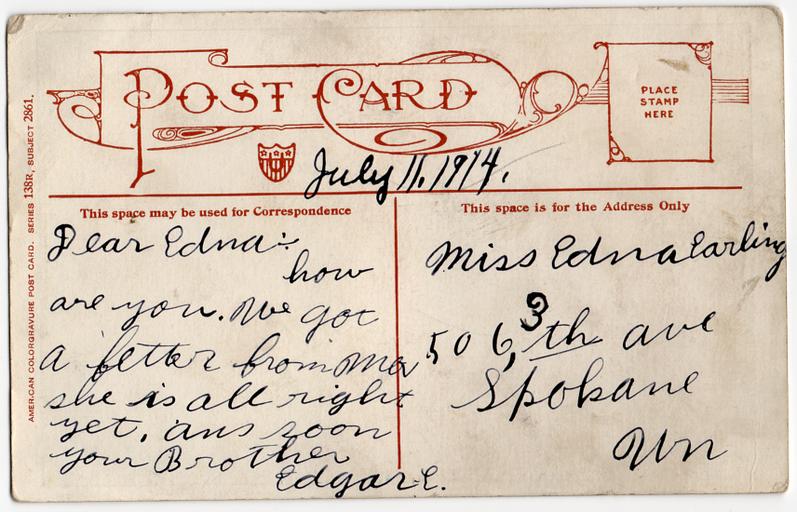 POST CARD
PLACE
STAMP
HERE
July 11. 1914.
AMERICAN COLORGRAVURE POST CARD. SERIES 138R, SUBJECT 2861.
This space may be used for Correspondence
Dear Edna:-
how
are you. We got
a letter from Ma
she is all right
yet. ans soon
your Brother
Edgar E.
This space is for the Address Only
Miss Edna Earling
506, 3th ave
Spokane
Wn